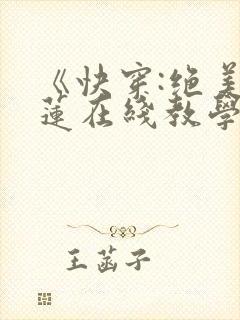 《快穿:绝美
蓮在綫教學
王菡子